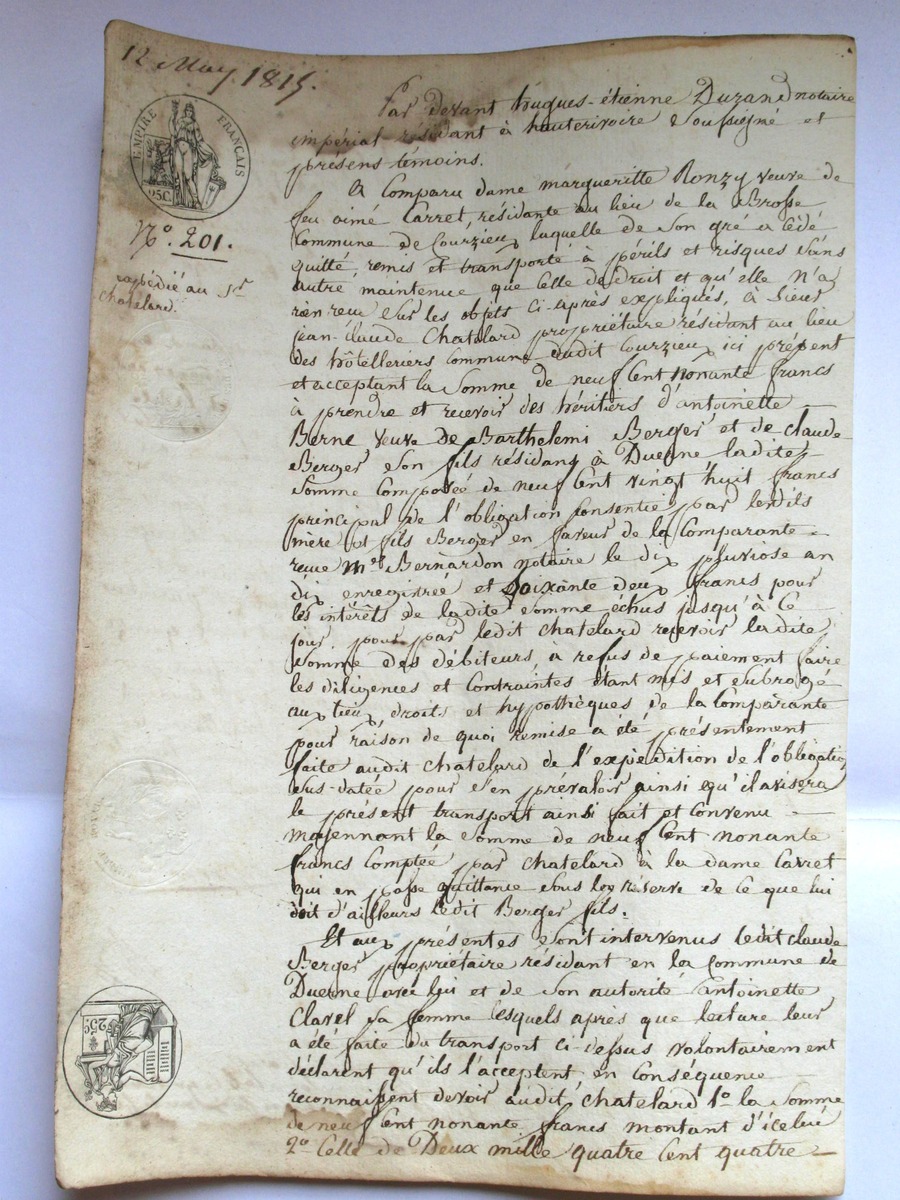 12 May 1815.
EMPIRE FRANÇAIS
25C.
N.º 201.
expédié au S.r
Chatelard.
Par devant hugues-étienne Durand notaire
impérial résidant à hauterivoire soussigné et
présens témoins.
A Comparu dame margueritte Ronzy veuve de
feu aimé Carret, résidante au lieu de la Brosse
Commune de Courzieu, laquelle de son gré a cédé
quitté, remis et transporté à périls et risques sans
autre maintenue que celle de droit et qu'elle n'a
rien reçu sur les objets ci-après expliqués, à sieur
jean-claude Chatelard propriétaire résidant au lieu
des hôtelleriers Commune dudit Courzieu, ici présent
et acceptant la somme de neuf cent nonante francs
à prendre et recevoir des héritiers d'antoinette
Berne veuve de Barthelemi Berger et de claude
Berger son fils résidans à Duerne ladite
somme composée de neuf cent vingt huit francs
principal de l'obligation consentie par lesdits
mère et fils Berger en faveur de la Comparante
reçue M.e Bernardon notaire le dix pluviose an
dix enregistrée et soixante deux francs pour
les intérêts de ladite somme échus jusqu'à ce
jour, pour par ledit chatelard recevoir ladite
somme des débiteurs, a refus de paiement faire
les diligences et contraintes étant mis et subrogé
aux lieu, droits et hypothèques de la Comparante
pour raison de quoi remise a été présentement
faite audit chatelard de l'expédition de l'obligation
sus-datée pour s'en prévaloir ainsi qu'il avisera
le présent transport ainsi fait et convenu
moyennant la somme de neuf cent nonante
francs comptée par chatelard à la dame Carret
qui en passe quittance sous réserve de ce que lui
doit d'ailleurs ledit Berger fils.
Et aux présentes sont intervenus ledit claude
Berger propriétaire résidant en la Commune de
Duerne avec lui et de son autorité antoinette
Clavel sa femme lesquels après que lecture leur
a été faite du transport ci-dessus volontairement
déclarent qu'ils l'acceptent, en conséquence
reconnaissent devoir audit chatelard 1.º la somme
de neuf cent nonante francs montant d'icelui
2.º Celle de Deux mille quatre cent quatre
25C.